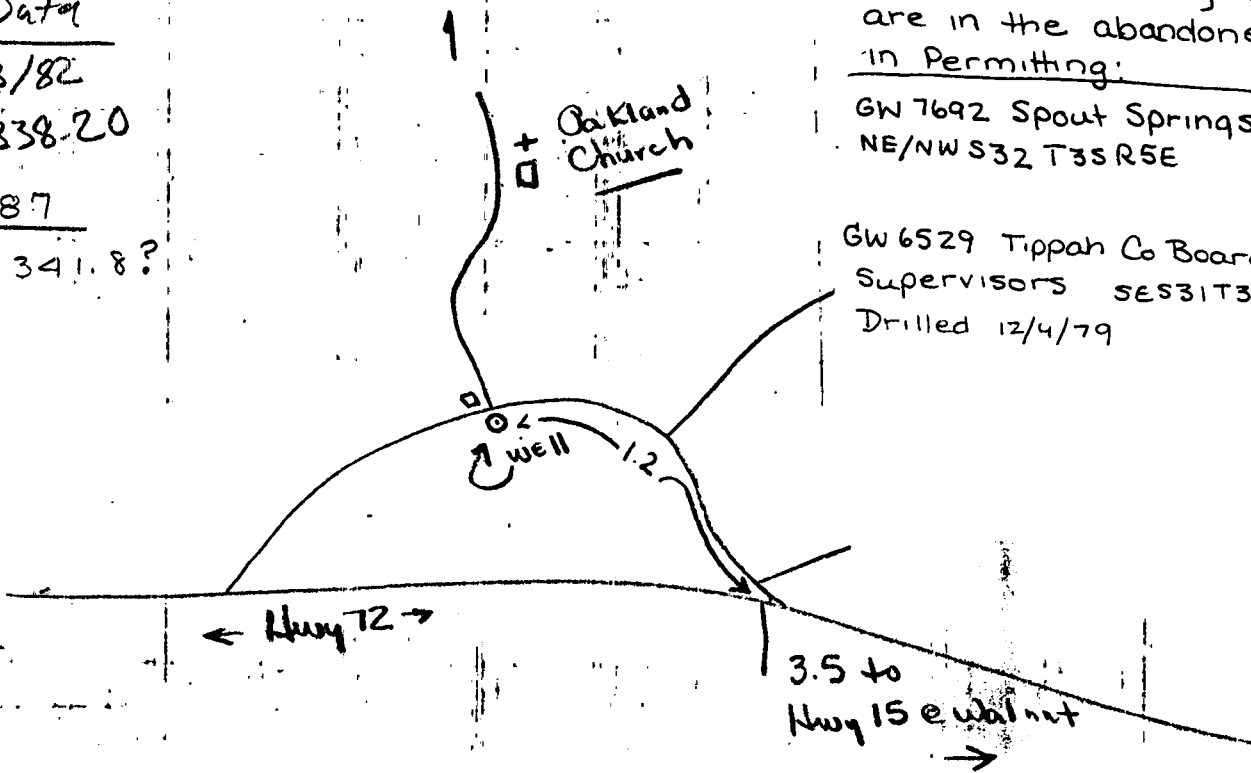 Data
/82
338.20
87
341.8?
1
Oakland
Church
are in the abandone
in Permitting:
GW 7692 Spout Springs
NE/NW S32 T3S R5E
GW 6529 Tippah Co Boar
Supervisors SES31T3
Drilled 12/4/79
well
1.2
← Hwy 72 →
3.5 to
Hwy 15 @ Walnut
→